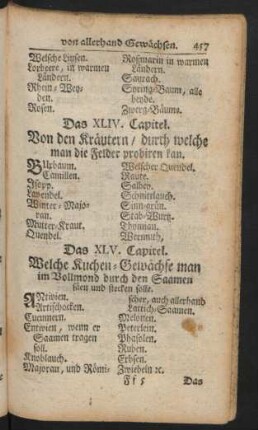 von allerhand Gewächsen. 457
Welsche Linsen.
Lorbeere, in warmen
Ländern.
Rhein-Wey-
den.
Rosen.
Roßmarin in warmen
Ländern.
Saurach.
Spring-Baum, alle
beyde.
Zwerg-Bäume.
Das XLIV. Capitel.
Von den Kräutern / durch welche
man die Felder probiren kan.
Camillen.
Isopp.
Lavendel.
Winter-Majo-
ran.
Mutter-Kraut.
Quendel.
Welscher Quendel.
Raute.
Salbey.
Schnittlauch.
Sinn-grün.
Stab-Wurtz.
Wermuth.
Das XLV. Capitel.
Welche Kuchen-Gewächse man
im Vollmond durch den Saamen
säen und stecken solle.
ANtivien.
Artischocken.
Cucumern.
Entivien, wenn er
Saamen tragen
soll.
Knoblauch.
Majoran, und Römi-
scher, auch allerhand
Lattich-Saamen.
Melonen.
Peterlein.
Phasolen.
Ruben.
Erbsen.
Zwiebeln ꝛc.
Ff 5 Das